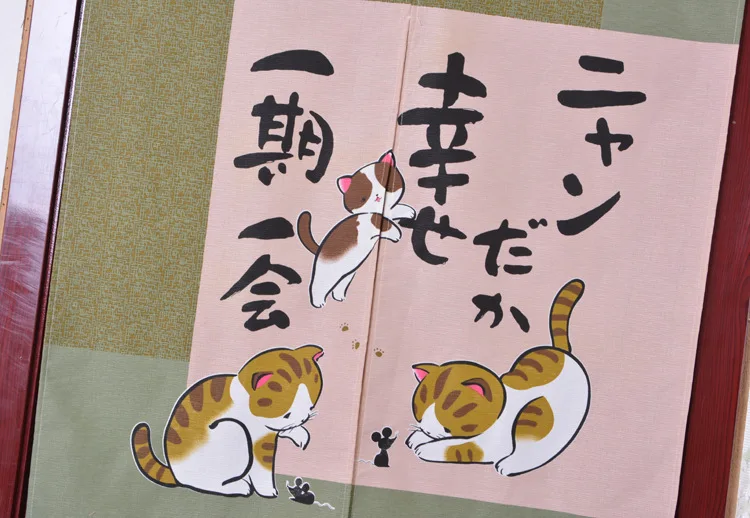 ニャン
だか
幸せ
一期
一会